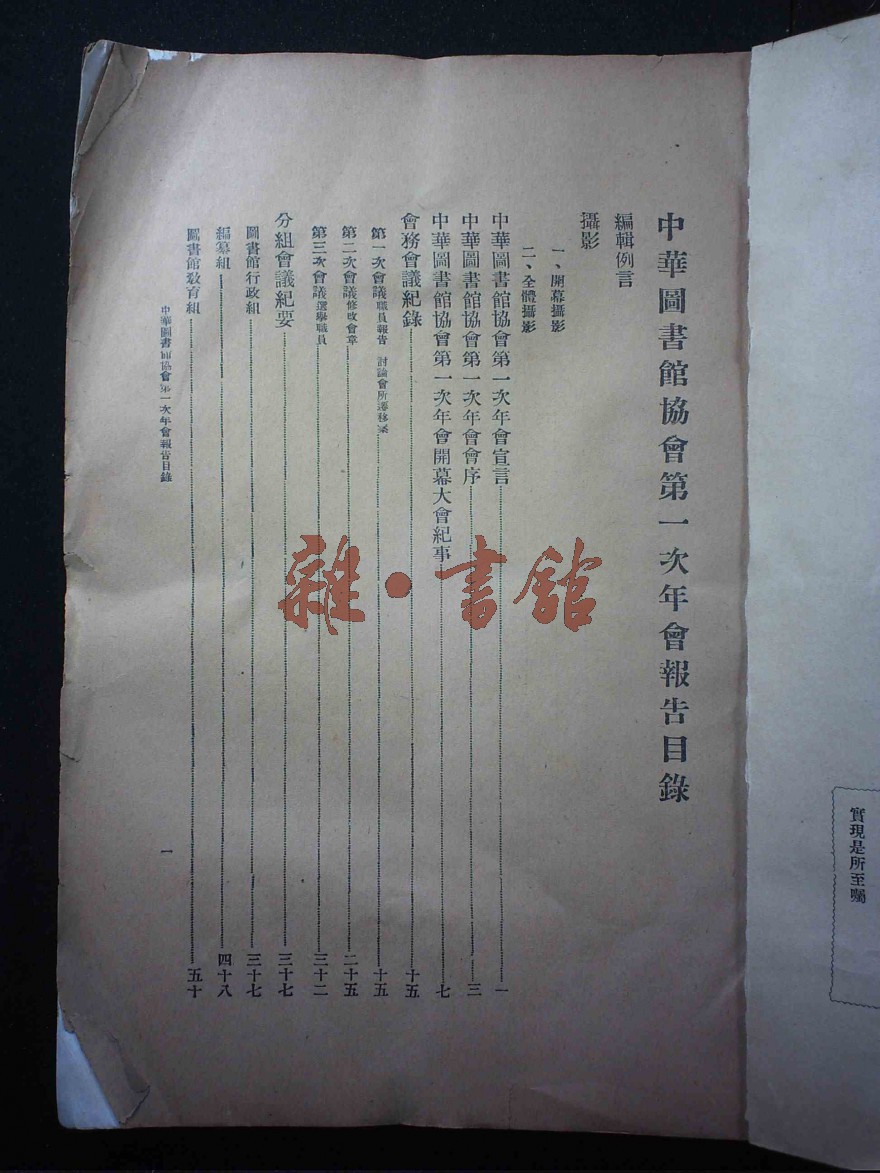 中華圖書館協會第一次年會報告目錄
編輯例言
攝影
一、開幕攝影
二、全體攝影
中華圖書館協會第一次年會宣言……一
中華圖書館協會第一次年會會序……三
中華圖書館協會第一次年會開幕大會紀事……七
會務會議紀錄……十五
第一次會議職員報告 討論會所遷移案……十五
第二次會議修改會章……二十五
第三次會議選舉職員……三十二
分組會議紀要……三十七
圖書館行政組……三十七
編纂組……四十八
圖書館教育組……五十
中華圖書館協會第一次年會報告目錄
一
實現是所至囑
雜·書館